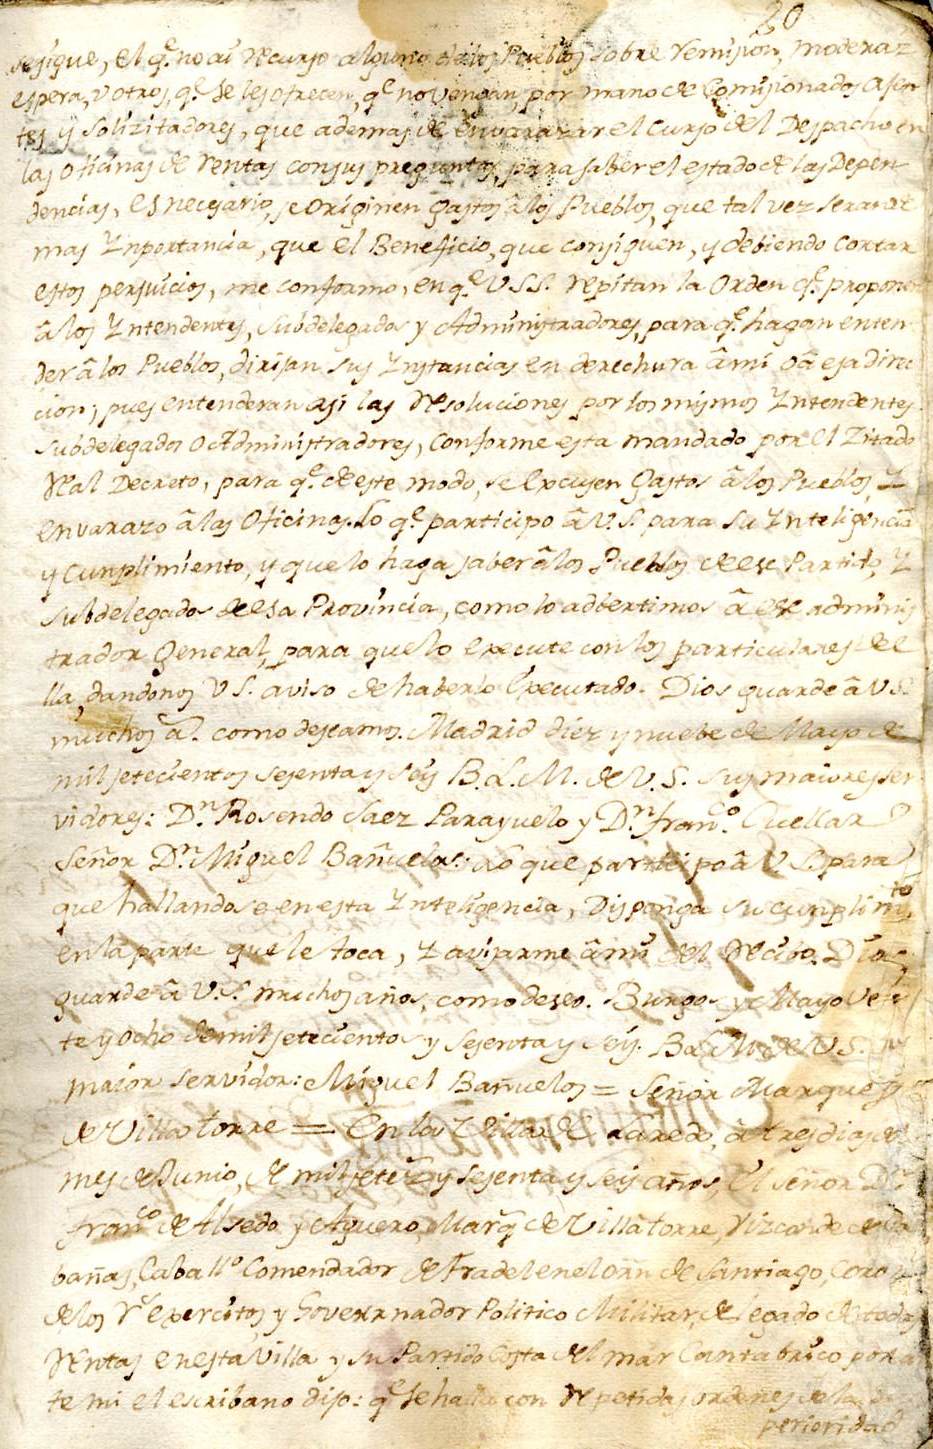 20
se sigue, el q.e no ai Recurso alguno de los Pueblos sobre remision, moderaz.
espera, u otros, q.e se les ofrecen, q.e no vengan, por mano de Comisionados Ajen
tes y Solizitadores, que ademas de envarazar el Curso del Despacho en
las oficinas de Rentas con sus preguntas, para saber el estado de las Depen
dencias, es necesario, se originen Gastos â los Pueblos, que tal vez seran de
mas Ynportancia, que el Beneficio, que consiguen, y debiendo Cortar
estos perjuicios, me conformo, en q.e V.S.S. Repitan la Orden q.e proponen
â los Yntendentes, Subdelegados y Administradores, para q.e hagan enten
der â los Pueblos, dirijan sus Ynstancias en derechura â mi o â esa direc
cion; pues entenderan asi las Resoluciones por los mismos Yntendentes
Subdelegados o Administradores, Conforme esta mandado por el Zitado
Real Decreto, para q.e de este modo, se Excusen Gastos â los Pueblos, Y
envarazo â las Oficinas. Lo q.e participo â V.S. para su Ynteligencia
y Cunplimiento, y que lo haga saber â los Pueblos de ese Partido, Y
Subdelegados de esa Provincia, como lo adbertimos â ese adminis
trador General, para que lo execute con los particulares de e
lla, dandonos V S. aviso de haberlo Executado. Dios guarde â V S.
muchos a.s como deseamos. Madrid diez y nuebe de Mayo de
mil setecientos sesenta y seis B. L. M. de V. S. sus maiores ser
vidores: D.n Rosendo Saez Parayuelo y D.n fran.co Cuellar
Señor D.n Miguel Bañuelos: Lo que participo â V S. para
que hallandose en esta Ynteligencia, Disponga su cunplim.to
en la parte que le toca, Y avisarme â mi del Recibo. Dios
guarde â V. S. muchos años, como deseo. Burgos y Mayo Vein
te y ocho de mil setecientos y sesenta y seis. B L M de V S. su
maior servidor: Miguel Bañuelos = Señor Marques
de Villa torre = En la Villa de Laredo, â tres dias de
mes de Junio, de mil setez.s y sesenta y seis años, El señor D.n
fran.co de Alsedo y Aguero, Marq.s de Villa torre, Vizconde de
bañas, Caball.o Comendador de Fradel en el orñ de Santiago, Coro
de los R.s exercitos y Governador Politico Militar, delegado de todas
Rentas en esta Villa y su Partido Costa del mar Cantabrico por a
te mi el escribano dijo: q.e se halla con Repetidas ordenes de la
perioridad